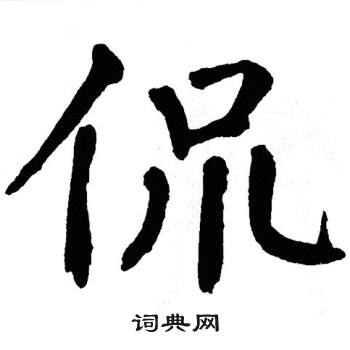 侃
词典网